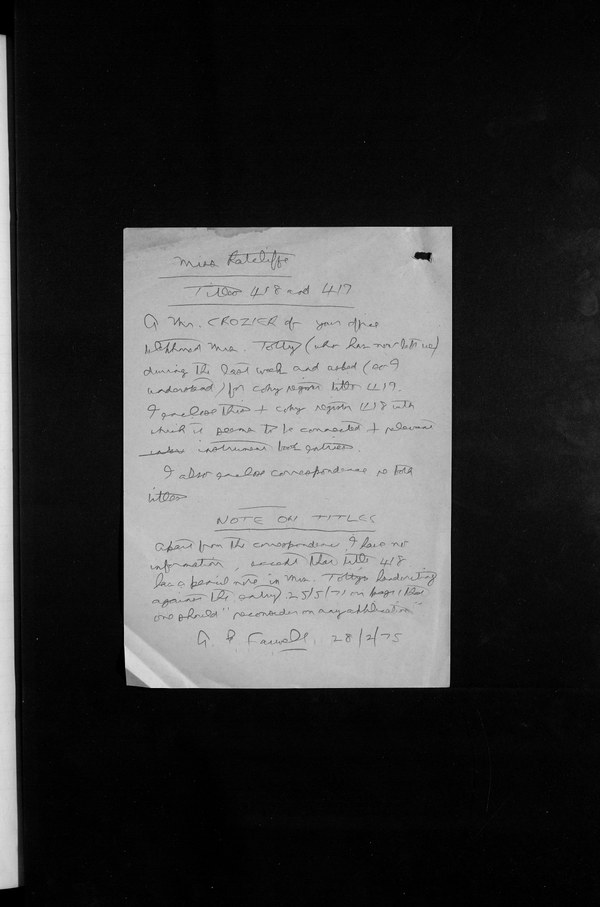 Miss Ratcliffe
Titles 418 and 417
A Mr. CROZIER of your office
telephoned Mrs. Totty (who has now left us)
during the last week and asked (as I
understand) for copy register title 419.
I enclose this + copy register 418 with
which it seems to be connected + relevant
instrument book entries.
I also enclose correspondence re both
titles
NOTE ON TITLES
Apart from the correspondence, I have no
information, except that title 418
has a pencil note in Mrs. Totty's handwriting
against the entry 25/5/71 on page 1 that
one should "reconsider on any application"
28/2/75